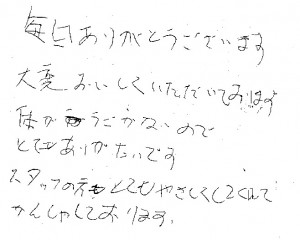 毎日ありがとうございます
大変おいしくいただいております
体がうごかないので
とてもありがたいです
スタッフの とてもやさしくしてくれて
かんしゃしております。